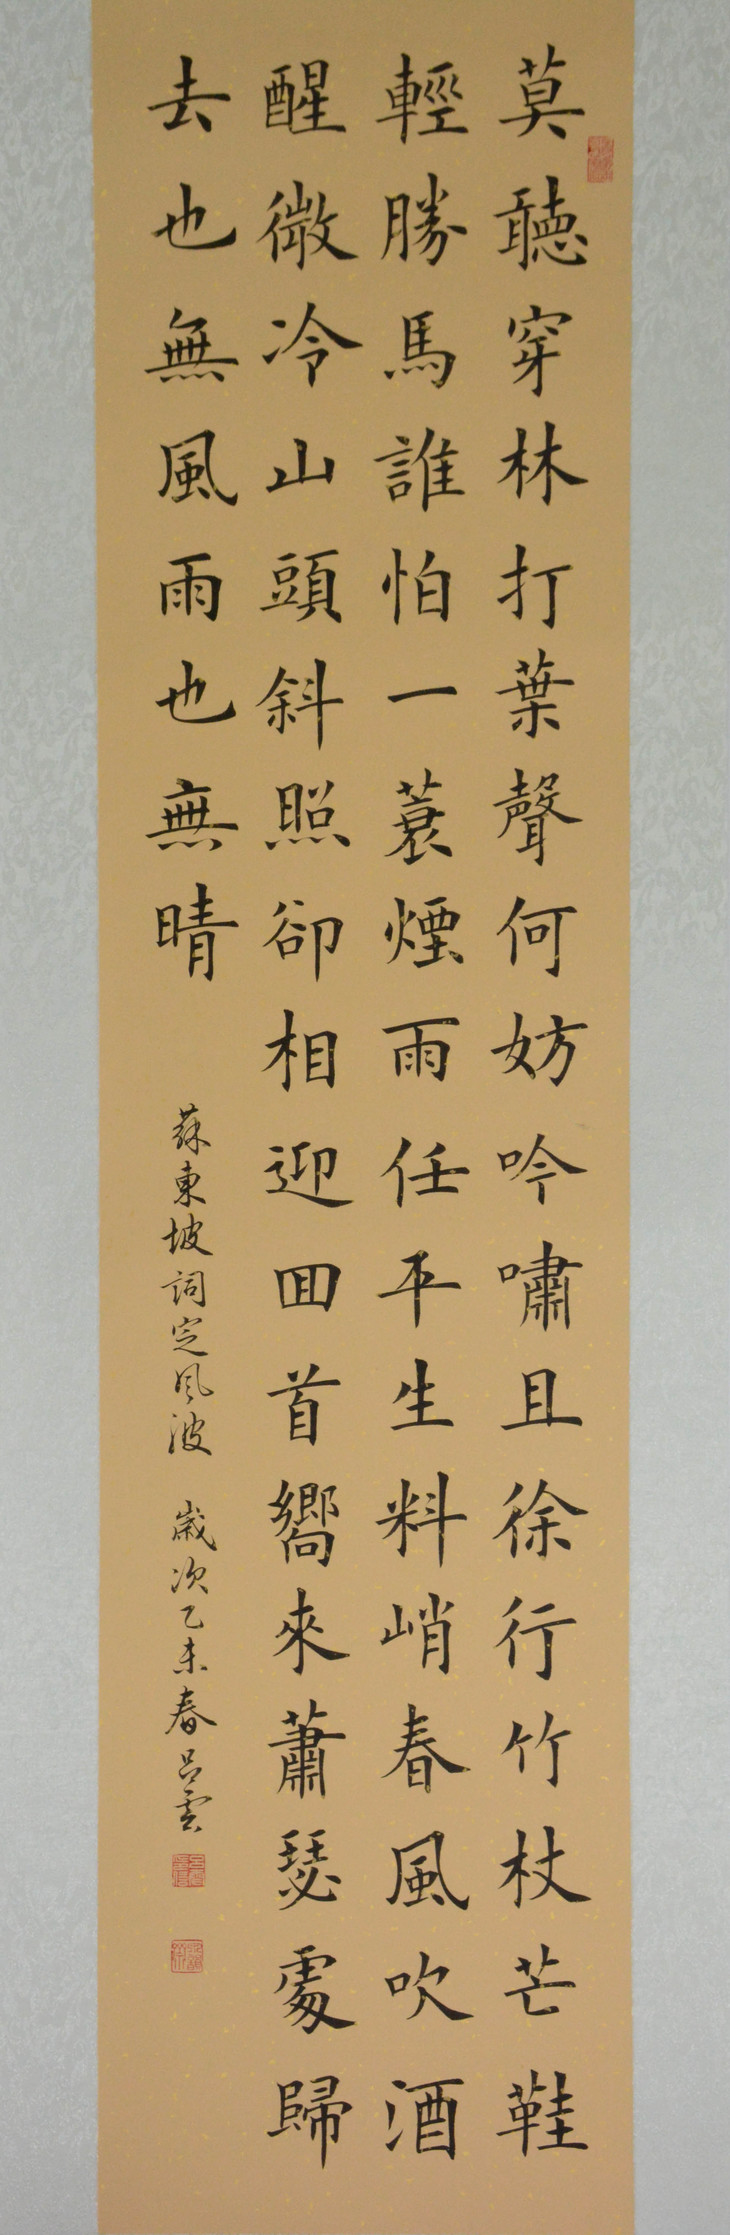 莫聽穿林打葉聲何妨吟嘯且徐行竹杖芒鞋
輕勝馬誰怕一蓑煙雨任平生料峭春風吹酒
醒微冷山頭斜照卻相迎回首嚮來蕭瑟處歸
去也無風雨也無晴
蘇東坡詞定風波 歲次乙未春呂雲